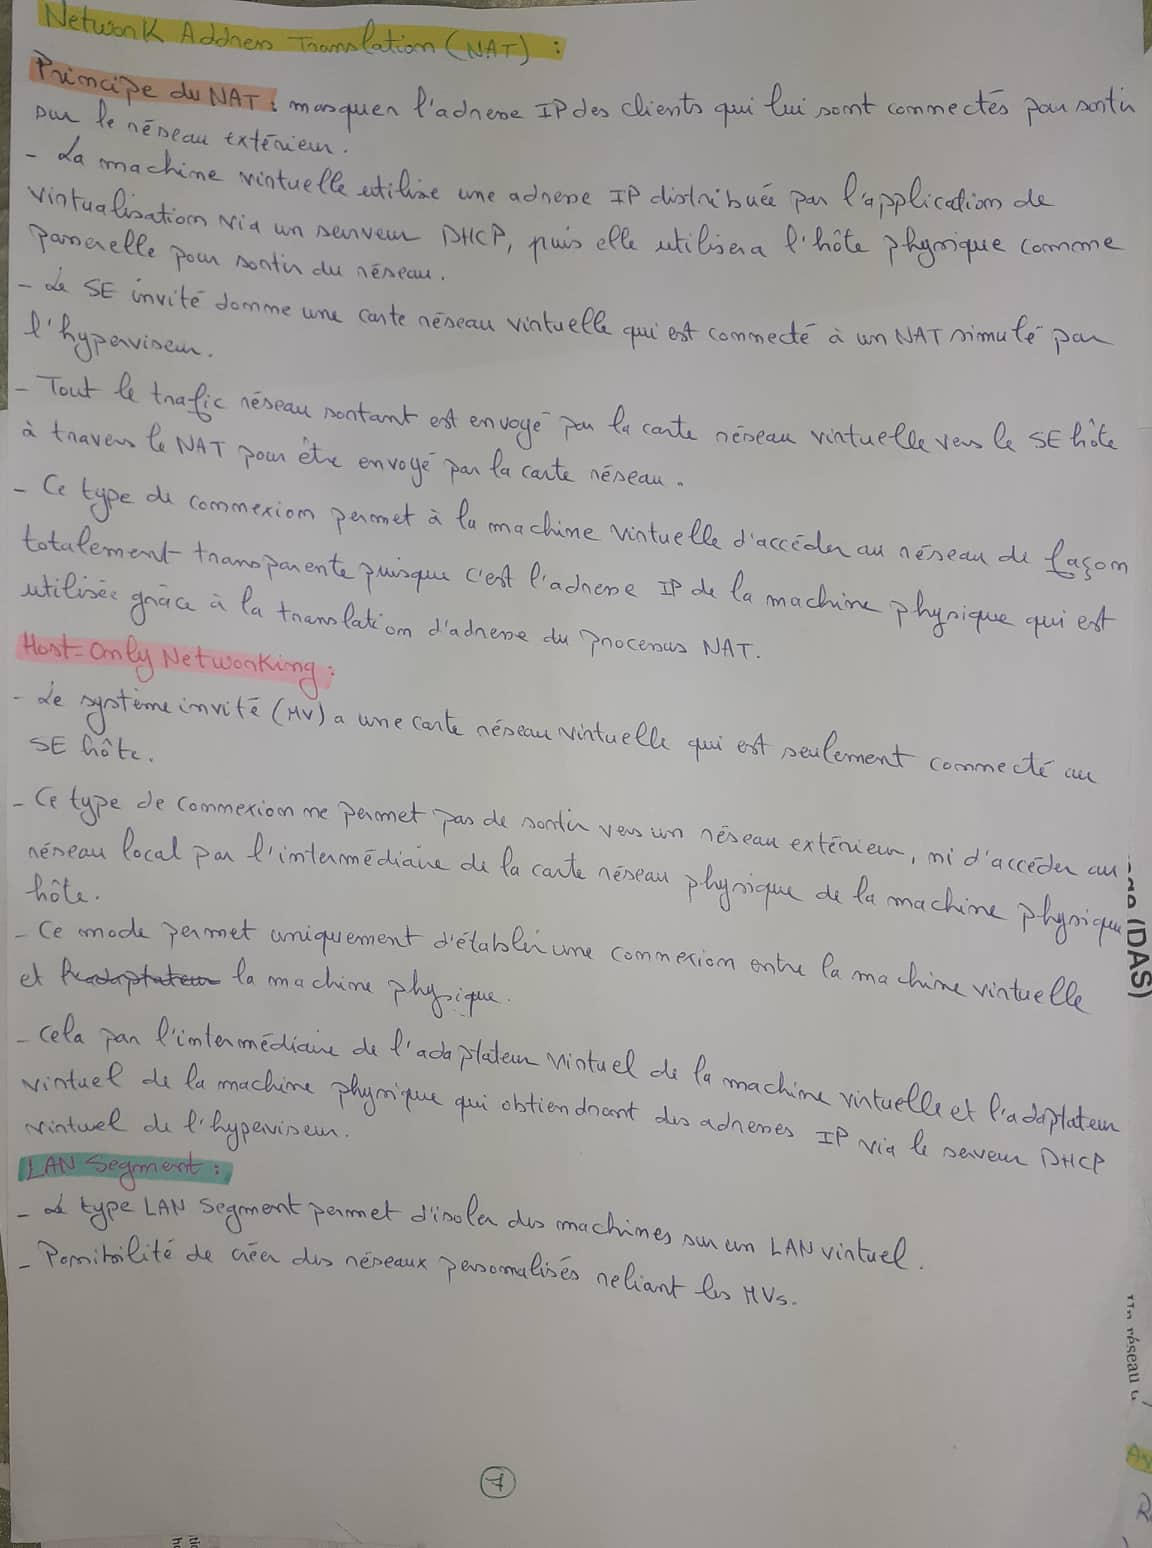 Network Address Translation (NAT) :
Principe du NAT : masquer l'adresse IP des clients qui lui sont connectés pour sortir
sur le réseau extérieur.
- La machine virtuelle utilise une adresse IP distribuée par l'application de
virtualisation via un serveur DHCP, puis elle utilisera l'hôte physique comme
passerelle pour sortir du réseau.
- Le SE invité donne une carte réseau virtuelle qui est connecté à un NAT simulé par
l'hyperviseur.
- Tout le trafic réseau sortant est envoyé par la carte réseau virtuelle vers le SE hôte
à travers le NAT pour être envoyé par la carte réseau.
- Ce type de connexion permet à la machine virtuelle d'accéder au réseau de façon
totalement transparente puisque c'est l'adresse IP de la machine physique qui est
utilisée grâce à la translation d'adresse du processus NAT.
Host-Only Networking :
- Le système invité (MV) a une carte réseau virtuelle qui est seulement connecté au
SE hôte.
- Ce type de connexion ne permet pas de sortir vers un réseau extérieur, ni d'accéder au
réseau local par l'intermédiaire de la carte réseau physique de la machine physique
hôte.
- Ce mode permet uniquement d'établir une connexion entre la machine virtuelle
et la machine physique.
- Cela par l'intermédiaire de l'adaptateur virtuel de la machine virtuelle et l'adaptateur
virtuel de la machine physique qui obtiendront des adresses IP via le serveur DHCP
virtuel de l'hyperviseur.
LAN Segment :
- Le type LAN Segment permet d'isoler des machines sur un LAN virtuel.
- Possibilité de créer des réseaux personalisés reliant les MVs.
7
(DAS)
Un réseau